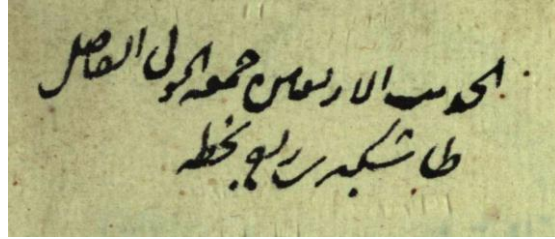 الحديث الاربعين جمعه المولى الفاضل
طاشكبرى زاده بخطه